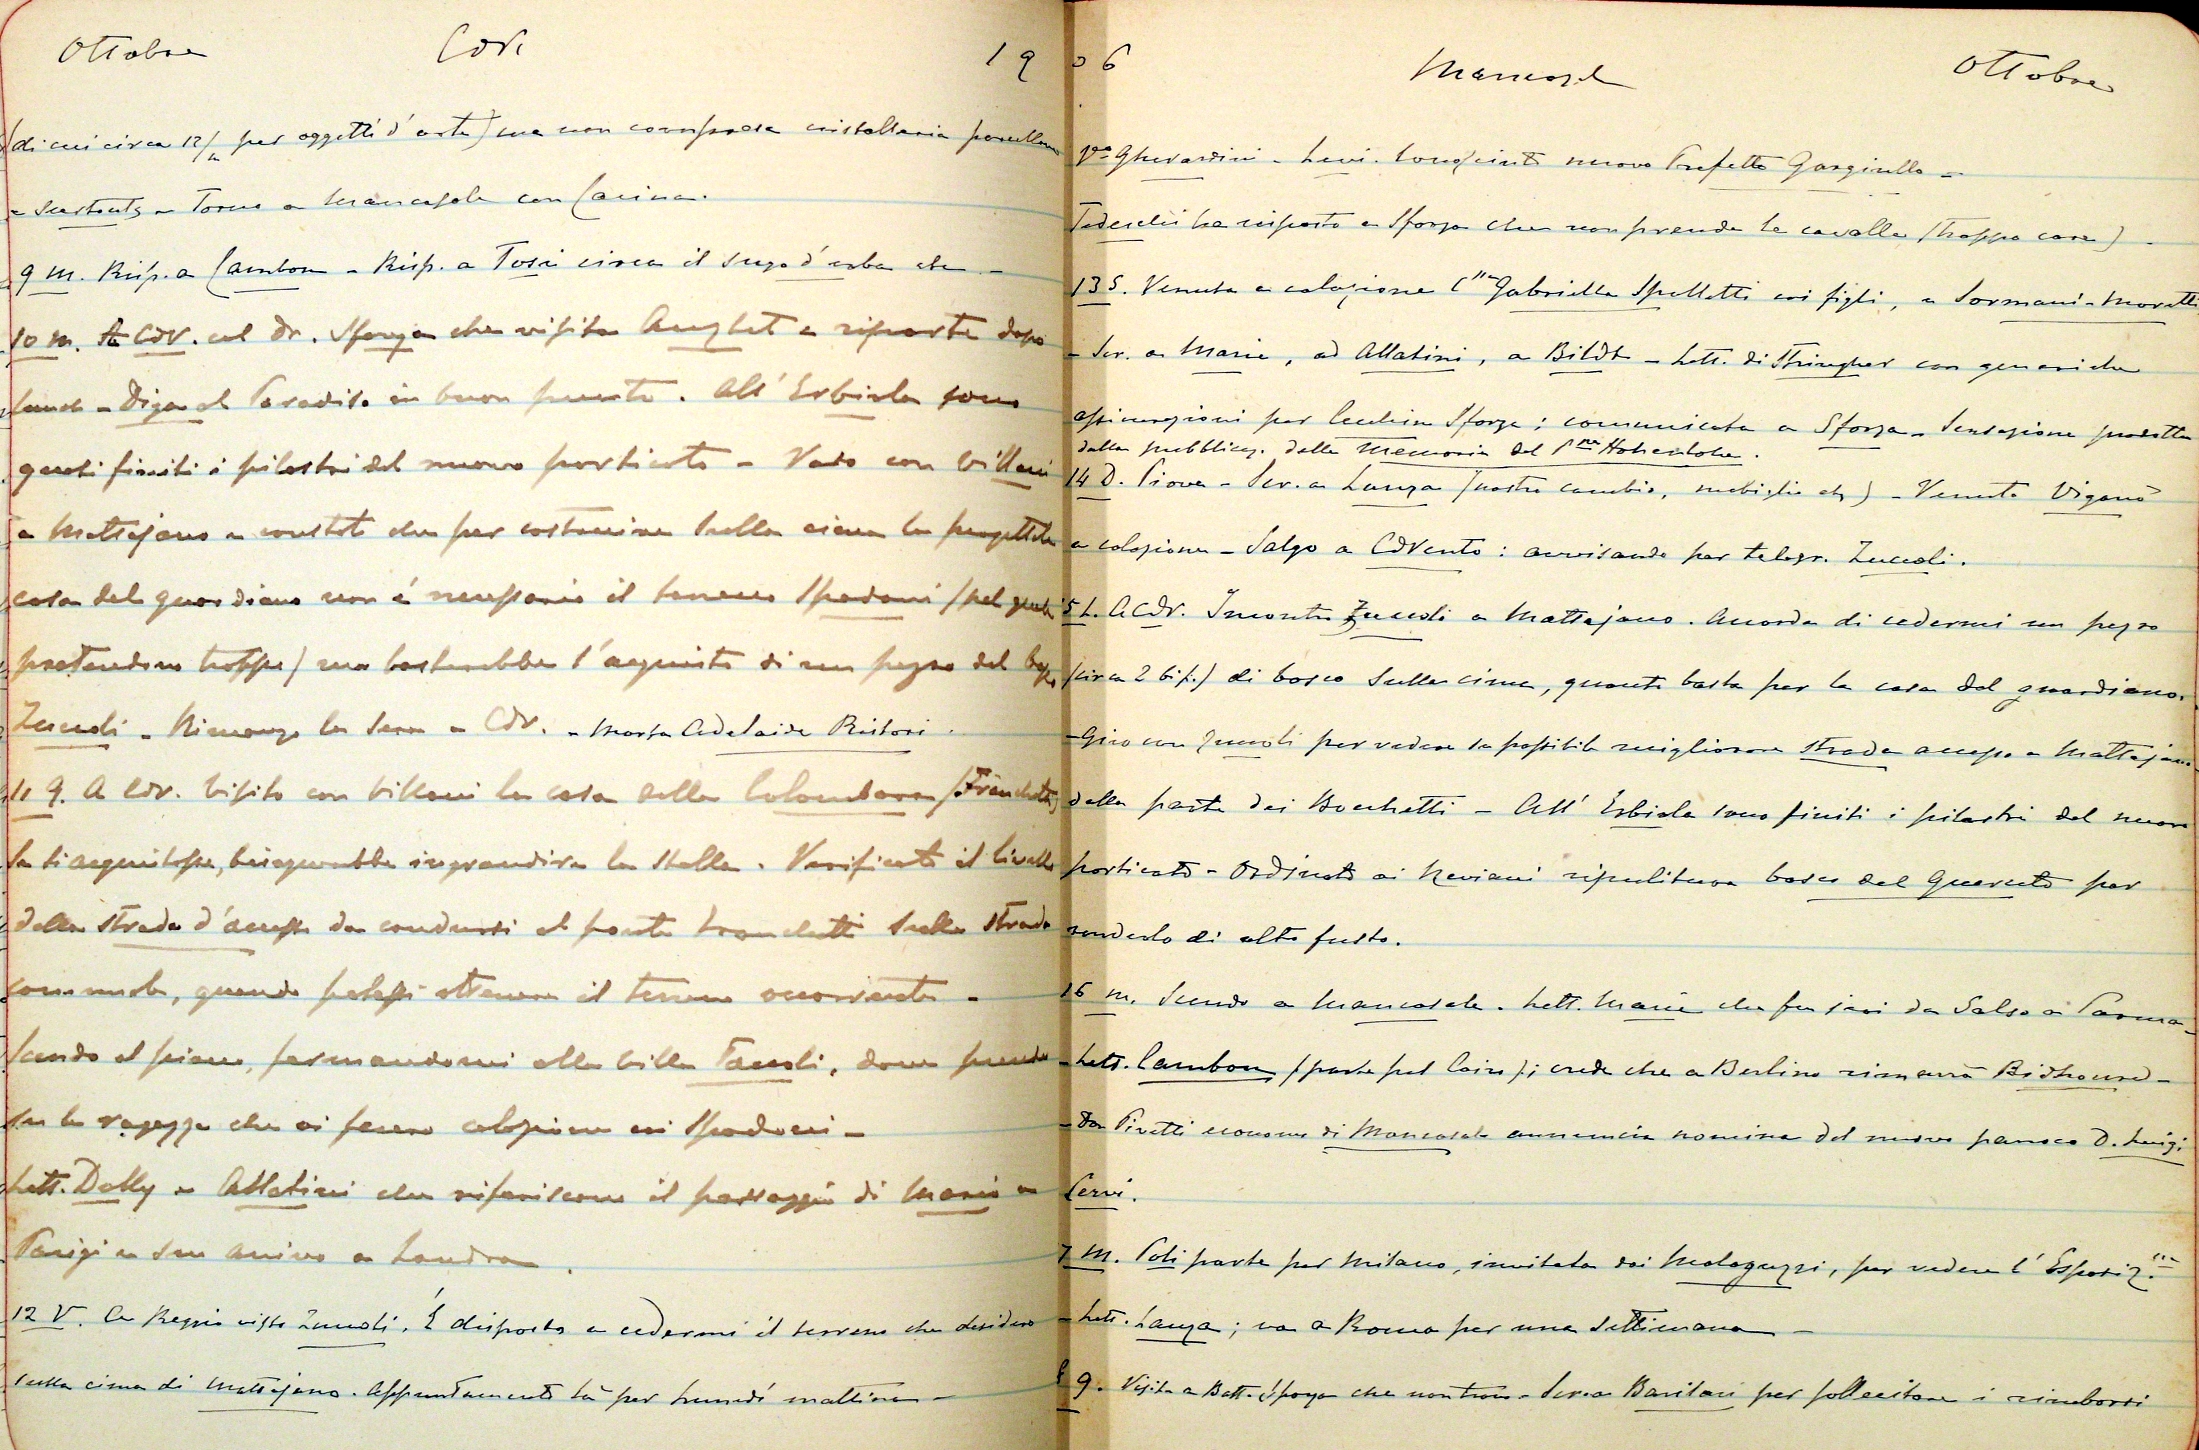 Ottobre CdV. 19
(di cui circa 12/m per oggetti d'arte) ma non compresa cristalleria porcellane
e - Torno a Mancasale con Carina.
9 M. Risp. a Cambon - Risp. a Tosi circa il sugo d'erba etc. -
10 M. A CdV. col Dr. Sforza che visita Anglet e riparte dopo
lunch - Diga al Paradiso in buon punto. All'Erbiola sono
quasi finiti i pilastri del nuovo porticato - Vado con Villani
a Mattajano e constato che per costruire sulla cima la progettata
casa del guardiano non è necessario il terreno Spadoni (pel quale
pretendono troppo) ma basterebbe l'acquisto di un pezzo del bosco
Zuccoli - Rimango la sera a CdV. - Morta Adelaide Ristori.
11 G. A CdV. Visito con Villani la casa della Colombara (Franchetti)
se si acquistasse, bisognerebbe ingrandire la stalla. Verificato il livello
della strada d'accesso da condursi al ponte Franchetti sulla strada
comunale, quando potessi ottenere il terreno occorrente -
Scendo al piano, fermandomi alla villa Tacoli, dove prendo
su le ragazze che vi fecero colazione coi Spadoni -
Lett. Dolly e Allatini che riferiscono il passaggio di Mario a
Parigi e suo arrivo a Londra.
12 V. A Reggio visto Zuccoli. È disposto a cedermi il terreno che desidero
sulla cima di Mattajano. Appuntamento là per lunedì mattina -
06 Mancasale Ottobre
Gherardini - Levi. Conosciuto nuovo Prefetto Gargiullo -
Tedeschi ha risposto a Sforza che non prende la cavalla (troppo cara) -
13 S. Venuta a colazione Gabriella Spalletti coi figli, e Sormani-Moretti
- Scr. a Mario, ad Allatini, a Bildt - Lett. di Stringher con generiche
assicurazioni per Cecchino Sforza; comunicata a Sforza - Sensazione prodotta
dalla pubblicaz. delle Memorie del Hohenlohe.
14 D. Piove - Scr. a Lanza (nostro cambio, mobiglio etc) - Venuto Viganò
a colazione - Salgo a CdVento: avvisando per telegr. Zuccoli.
5 L. A CdV. Incontro Zuccoli a Mattajano. Accorda di cedermi un pezzo
(circa 2 bif.) di bosco sulla cima, quanto basta per la casa del guardiano.
- Giro con Zuccoli per vedere se possibile migliorare strada accesso a Mattajano
dalla parte dei Bocchetti - All'Erbiola sono finiti i pilastri del nuovo
porticato - Ordinato ai Neviani ripulitura bosco del Querceto per
renderlo di alto fusto.
16 M. Scendo a Mancasale. Lett. Mario che fu ieri da Salso a Parma -
- Lett. Cambon (parte pel Cairo); crede che a Berlino rimarrà Bidhourd -
- Don Pivetti economo di Mancasale annuncia nomina del nuovo parroco D. Luigi
Cervi.
7 M. Poli parte per Milano, invitata dai Malaguzzi, per vedere l'Esposiz.ne
- Lett. Lanza; va a Roma per una settimana -
8 G. Visita a Batt. Sforza che non trovo - Scr. a Barilari per sollecitare i rimborsi